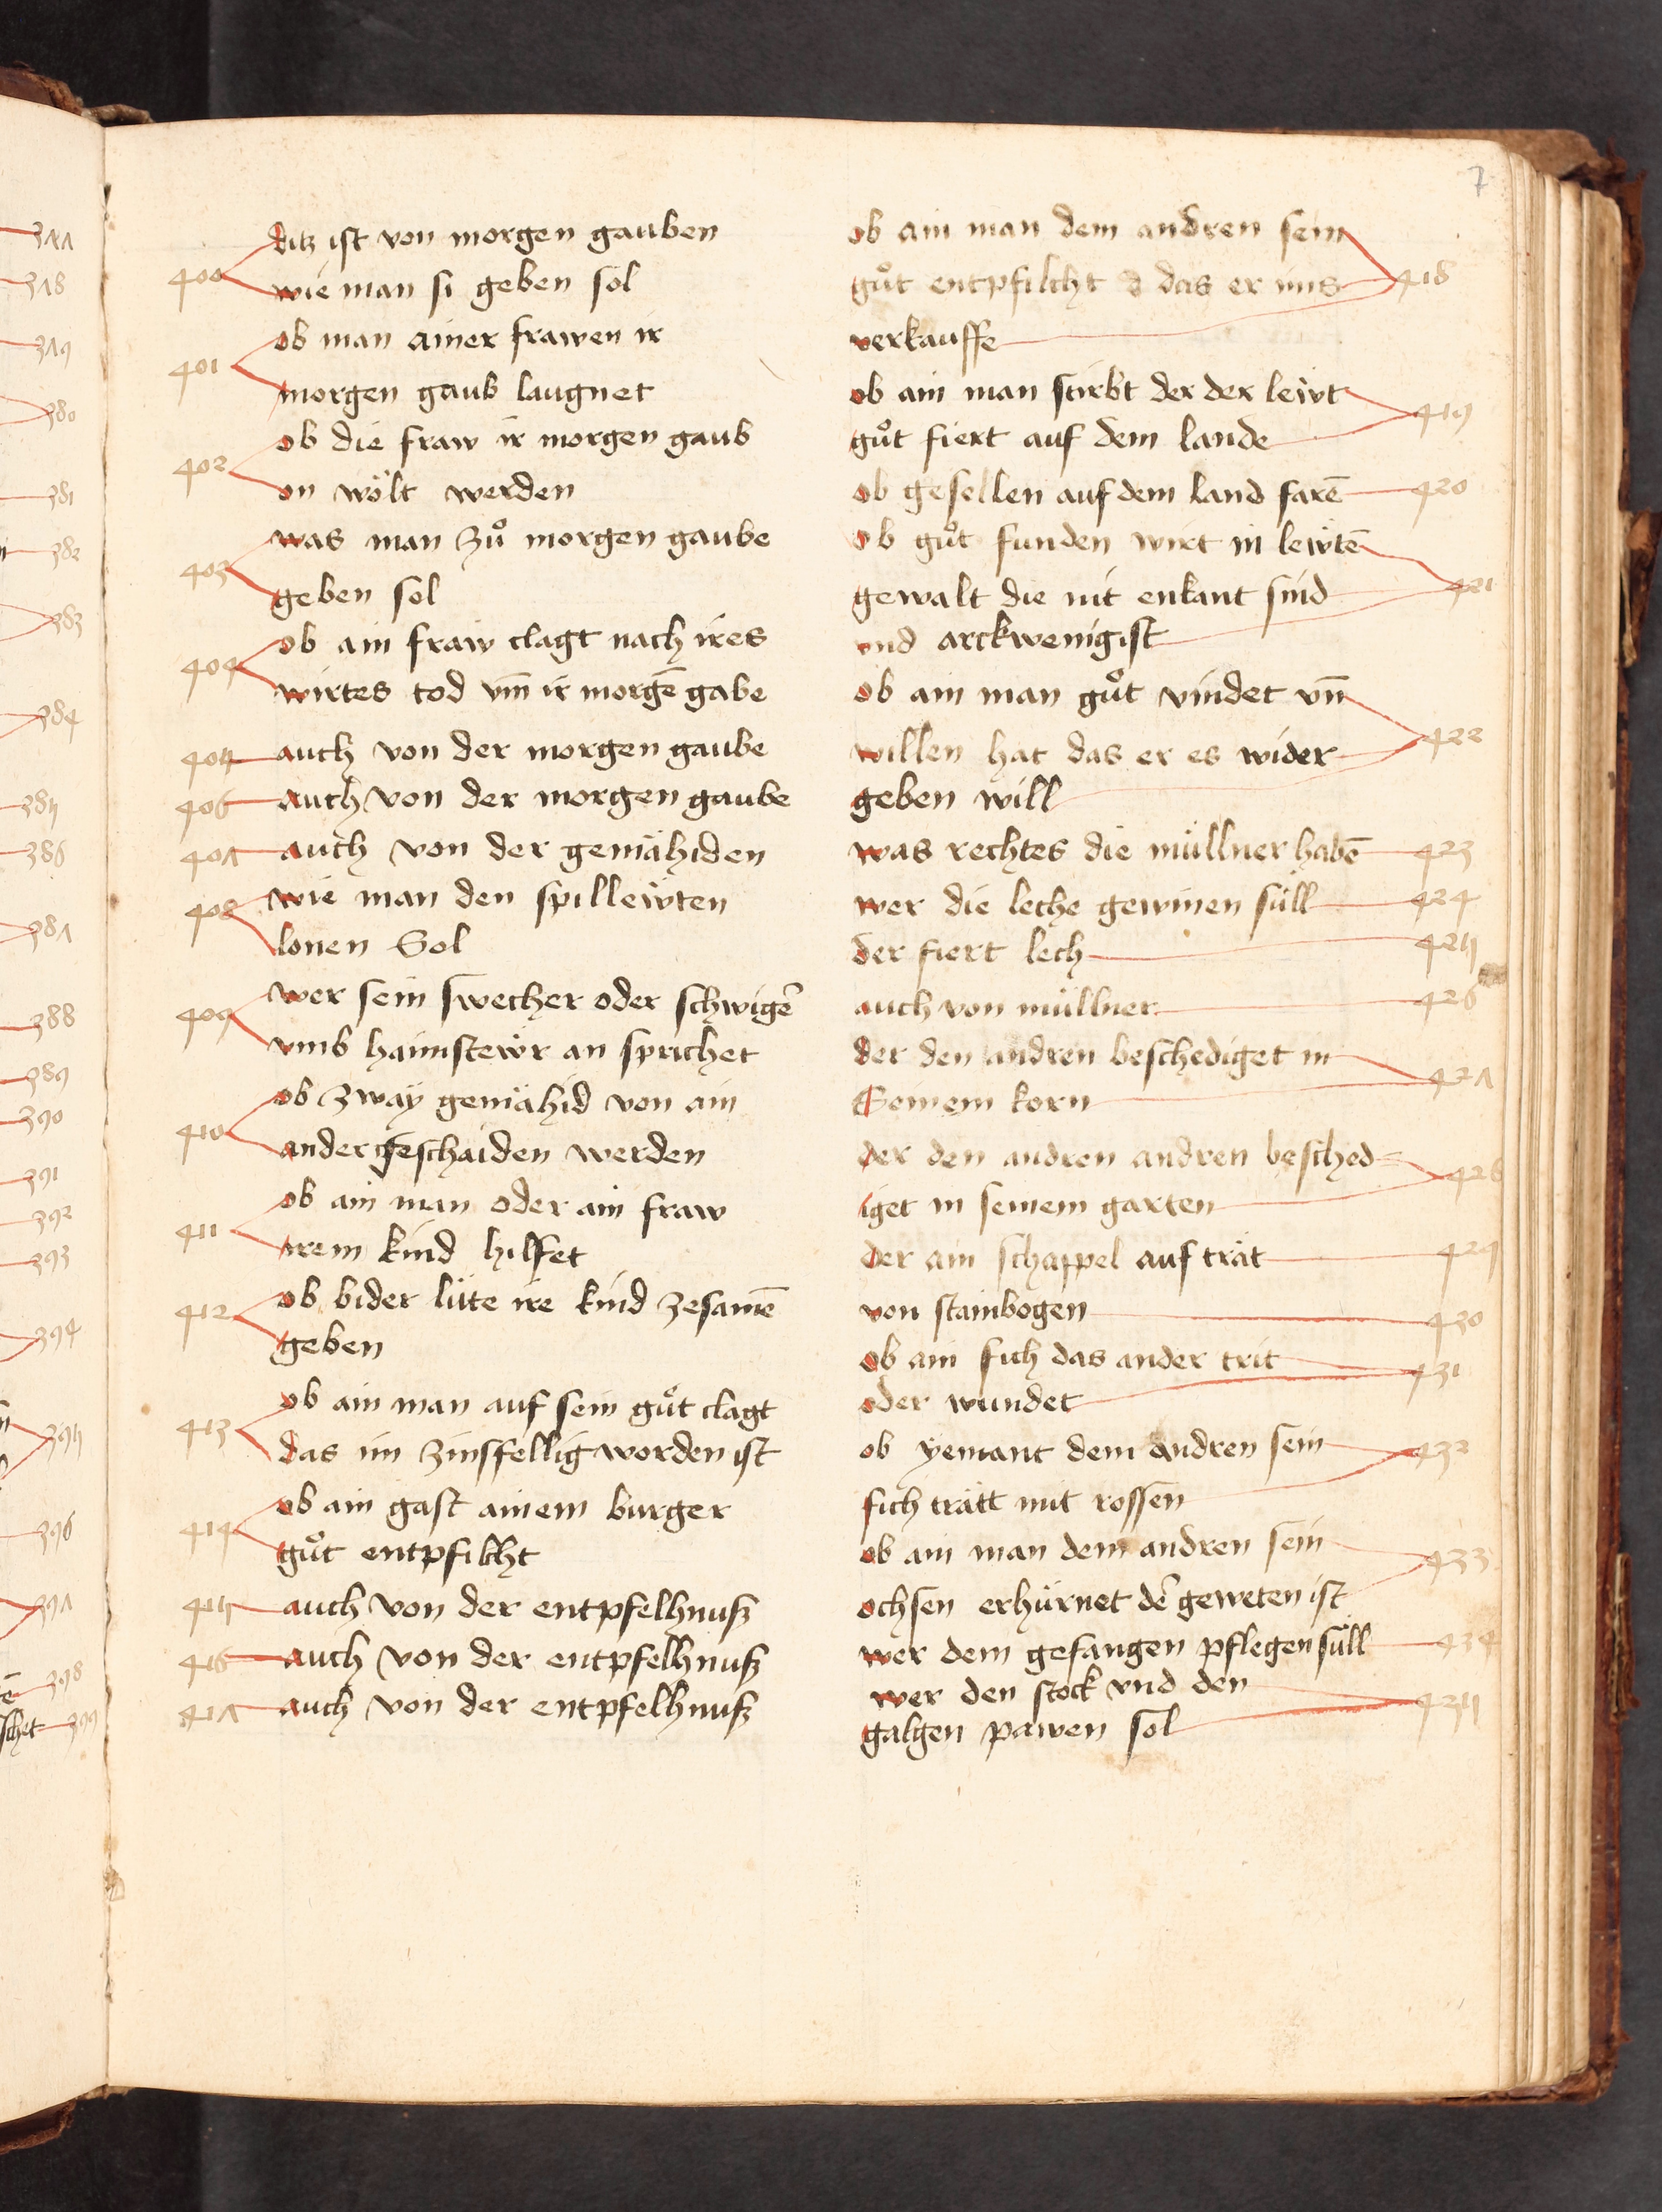 7
400 ditz ist von morgen gauben
wie man si geben sol
401 ob man ainer frawen ir
morgen gaub laugnet
402 ob die fraw ir morgen gaub
on wölt werden
403 was man zuͦ morgen gaube
geben sol
404 ob ain fraw clagt nach ires
wirtes tod vm̄ ir morgē gabe
405 auch von der morgen gaube
406 auch von der morgen gaube
407 auch von der gemähiden
408 wie man den spillewten
lonen Sol
409 wer sein swecher oder schwigē
vmb haimstewr an sprichet
410 ob zwaÿ gemähid von ain
ander geschaiden werden
411 ob ain man oder ain fraw
irem kind hilffet
412 ob bider lüte ire kind zesamē
geben
413 ob ain man auf sein guͦt clagt
das im zinsfellig worden ist
414 ob ain gast ainem burger
guͦt entpfilcht
415 auch von der entpfelhnuß
416 auch von der entpfelhnuß
417 auch von der entpfelhnuß
ob ain man dem andren sein 418
guͦt entpfilcht d das er ims
verkauffe
ob ain man stirbt der der lewt 419
guͦt fiert auf dem lande
ob gesellen auf dem land farē 420
ob guͦt funden wirt in lewtē 421
gewalt die nit enkant sind
vnd arckwenig ist
ob ain man guͦt vindet vn̄ 422
willen hat das er es wider
geben will
was rechtes die müllner habē 423
wer die leche gewinen süll 424
der fiert lech 425
auch von müllner 426
der den andren beschediget in 427
Seinem korn
der den andren andren besched= 428
iget in seinem garten
der ain schappel auf trät 429
von stainbogen 430
ob ain fich das ander trit 431
oder wundet
ob yemant dem andren sein 432
fich trätt mit rossen
ob ain man dem andren sein 433
ochsen erhürnet dē geweten ist
wer dem gefangen pflegen süll 434
wer den stock vnd den 435
galgen pawen sol